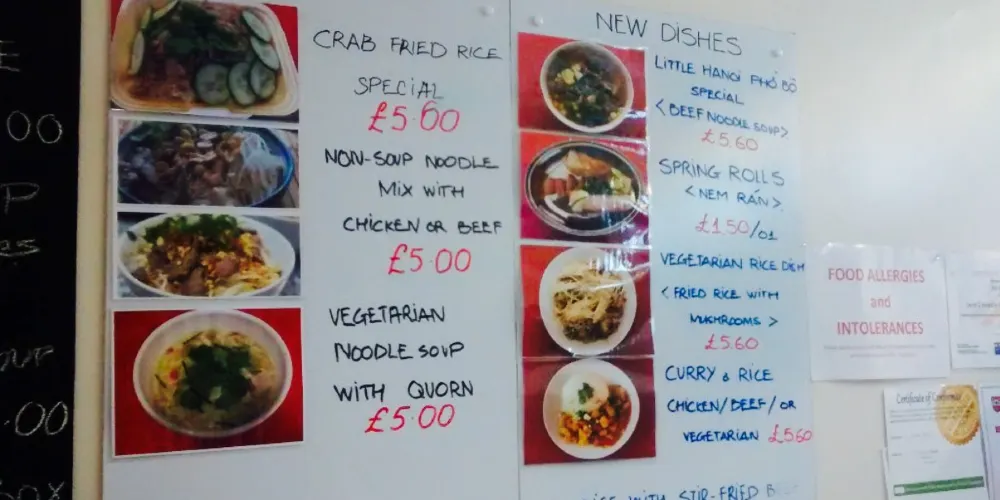 E
00
P
CRAB FRIED RICE
SPECIAL
£5.00
NON-SOUP NOODLE
MIX WITH
CHICKEN OR BEEF
£5.00
VEGETARIAN
NOODLE SOUP
WITH QUORN
£5.00
NEW DISHES
LITTLE HANOI PHỞ BÒ
SPECIAL
< BEEF NOODLE SOUP>
£5.60
SPRING ROLLS
< NEM RÁN >
£1.50/01
VEGETARIAN RICE DISH
< FRIED RICE WITH
MUSHROOMS >
£5.60
CURRY & RICE
CHICKEN/BEEF/OR
VEGETARIAN £5.60
RICE WITH STIR-FRIED
FOOD ALLERGIES
and
INTOLERANCES
.00
BOX